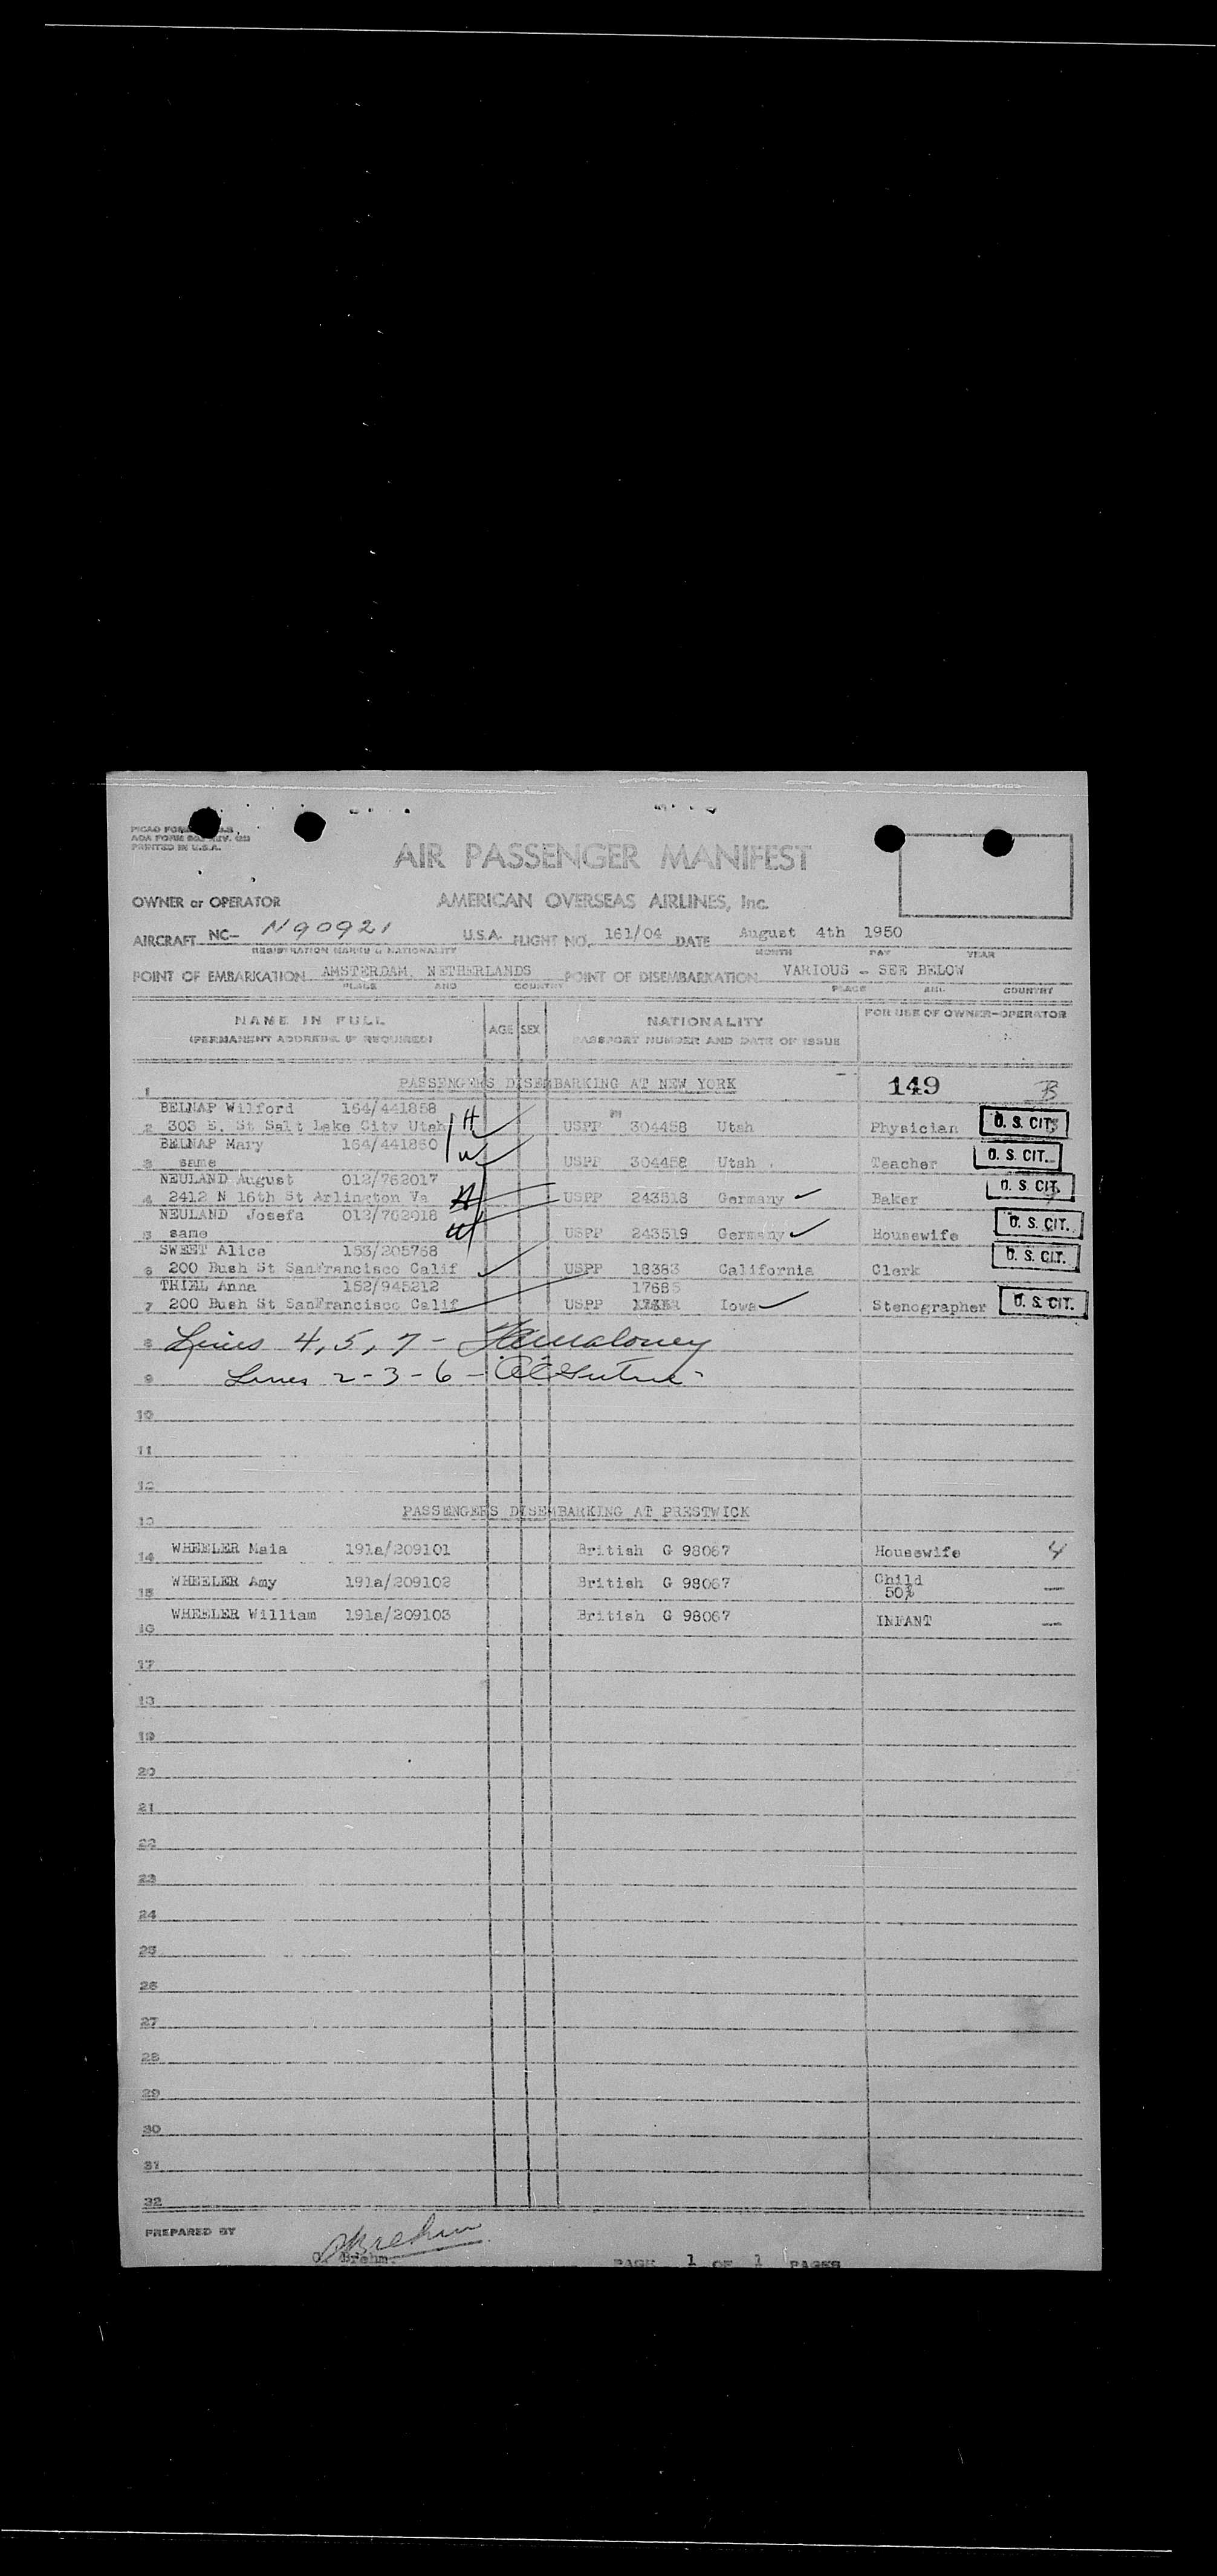 PRINTED IN U.S.A.
AIR PASSENGER MANIFEST
OWNER or OPERATOR AMERICAN OVERSEAS AIRLINES, Inc.
AIRCRAFT NC- N90921 U.S.A. FLIGHT NO. 161/04 DATE August 4th 1950
REGISTRATION MARKS & NATIONALITY MONTH DAY YEAR
POINT OF EMBARKATION AMSTERDAM, NETHERLANDS POINT OF DISEMBARKATION VARIOUS - SEE BELOW
PLACE AND COUNTRY PLACE AND COUNTRY
NAME IN FULL AGE SEX NATIONALITY FOR USE OF OWNER-OPERATOR
(PERMANENT ADDRESS, IF REQUIRED) PASSPORT NUMBER AND DATE OF ISSUE
1 PASSENGERS DISEMBARKING AT NEW YORK 149
BELNAP Wilford 164/441858 H
2 303 E. St Salt Lake City Utah USPP 304458 Utah Physician U. S. CIT.
BELNAP Mary 164/441860 W
3 same USPP 304458 Utah Teacher U. S. CIT.
NEULAND August 012/762017
4 2412 N 16th St Arlington Va H USPP 243518 Germany Baker U. S. CIT.
NEULAND Josefa 012/762018
5 same W USPP 243519 Germany Housewife U. S. CIT.
SWEET Alice 153/205768
6 200 Bush St SanFrancisco Calif USPP 18383 California Clerk U. S. CIT.
THIEL Anna 152/945212 17685
7 200 Bush St SanFrancisco Calif USPP Iowa Stenographer U. S. CIT.
8 Lines 4, 5, 7 -
9 Lines 2-3-6 -
10
11
12
13 PASSENGERS DISEMBARKING AT PRESTWICK
14 WHEELER Maia 191a/209101 British G 98067 Housewife 4
15 WHEELER Amy 191a/209102 British G 98067 Child
50%
16 WHEELER William 191a/209103 British G 98067 INFANT
17
18
19
20
21
22
23
24
25
26
27
28
29
30
31
32
PREPARED BY
O. Brehm.
PAGE 1 OF 1 PAGES